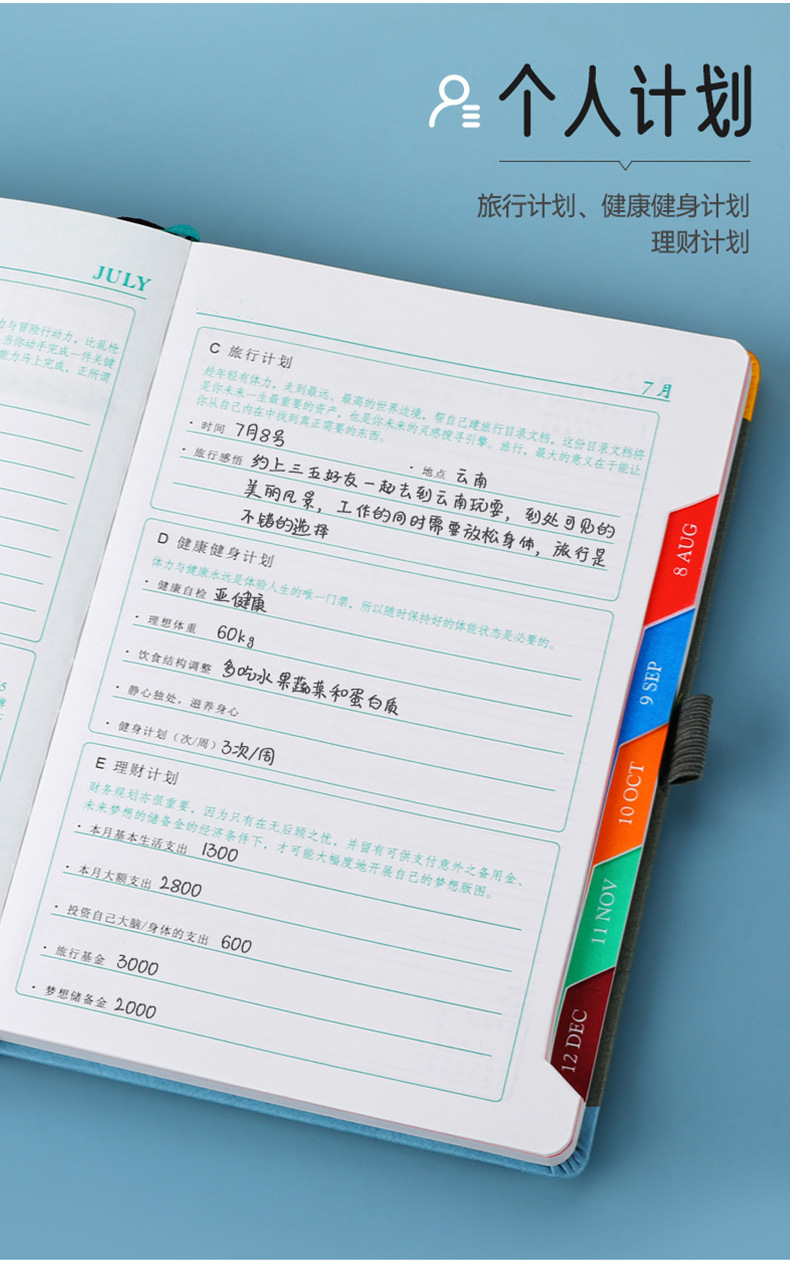 个人计划
旅行计划、健康健身计划
理财计划
JULY
力与冒险行动力，比乱枪
当你动手完成一件关键
能力马上完成，正所谓
7月
C 旅行计划
趁年轻有体力，走到最远、最高的世界边境，帮自己建旅行目录文档，这份目录文档将
是你未来一生最重要的资产，也是你未来的灵感搜寻引擎。旅行，最大的意义在于能让
你从自己内在中找到真正需要的东西。
· 时间 7月8号
· 地点 云南
· 旅行感悟 约上三五好友一起去到云南玩耍，到处可见的
美丽风景，工作的同时需要放松身体，旅行是
不错的选择
D 健康健身计划
体力与健康永远是体验人生的唯一门票，所以随时保持好的体能状态是必要的。
· 健康自检 亚健康
· 理想体重 60kg
· 饮食结构调整 多吃水果蔬菜和蛋白质
· 静心独处，滋养身心
· 健身计划（次/周）3次/周
E 理财计划
财务规划亦很重要，因为只有在无后顾之忧，并留有可供支付意外之备用金、
未来梦想的储备金的经济条件下，才可能大幅度地开展自己的梦想版图。
· 本月基本生活支出 1300
· 本月大额支出 2800
· 投资自己大脑/身体的支出 600
· 旅行基金 3000
· 梦想储备金 2000
8 AUG
9 SEP
10 OCT
11 NOV
12 DEC